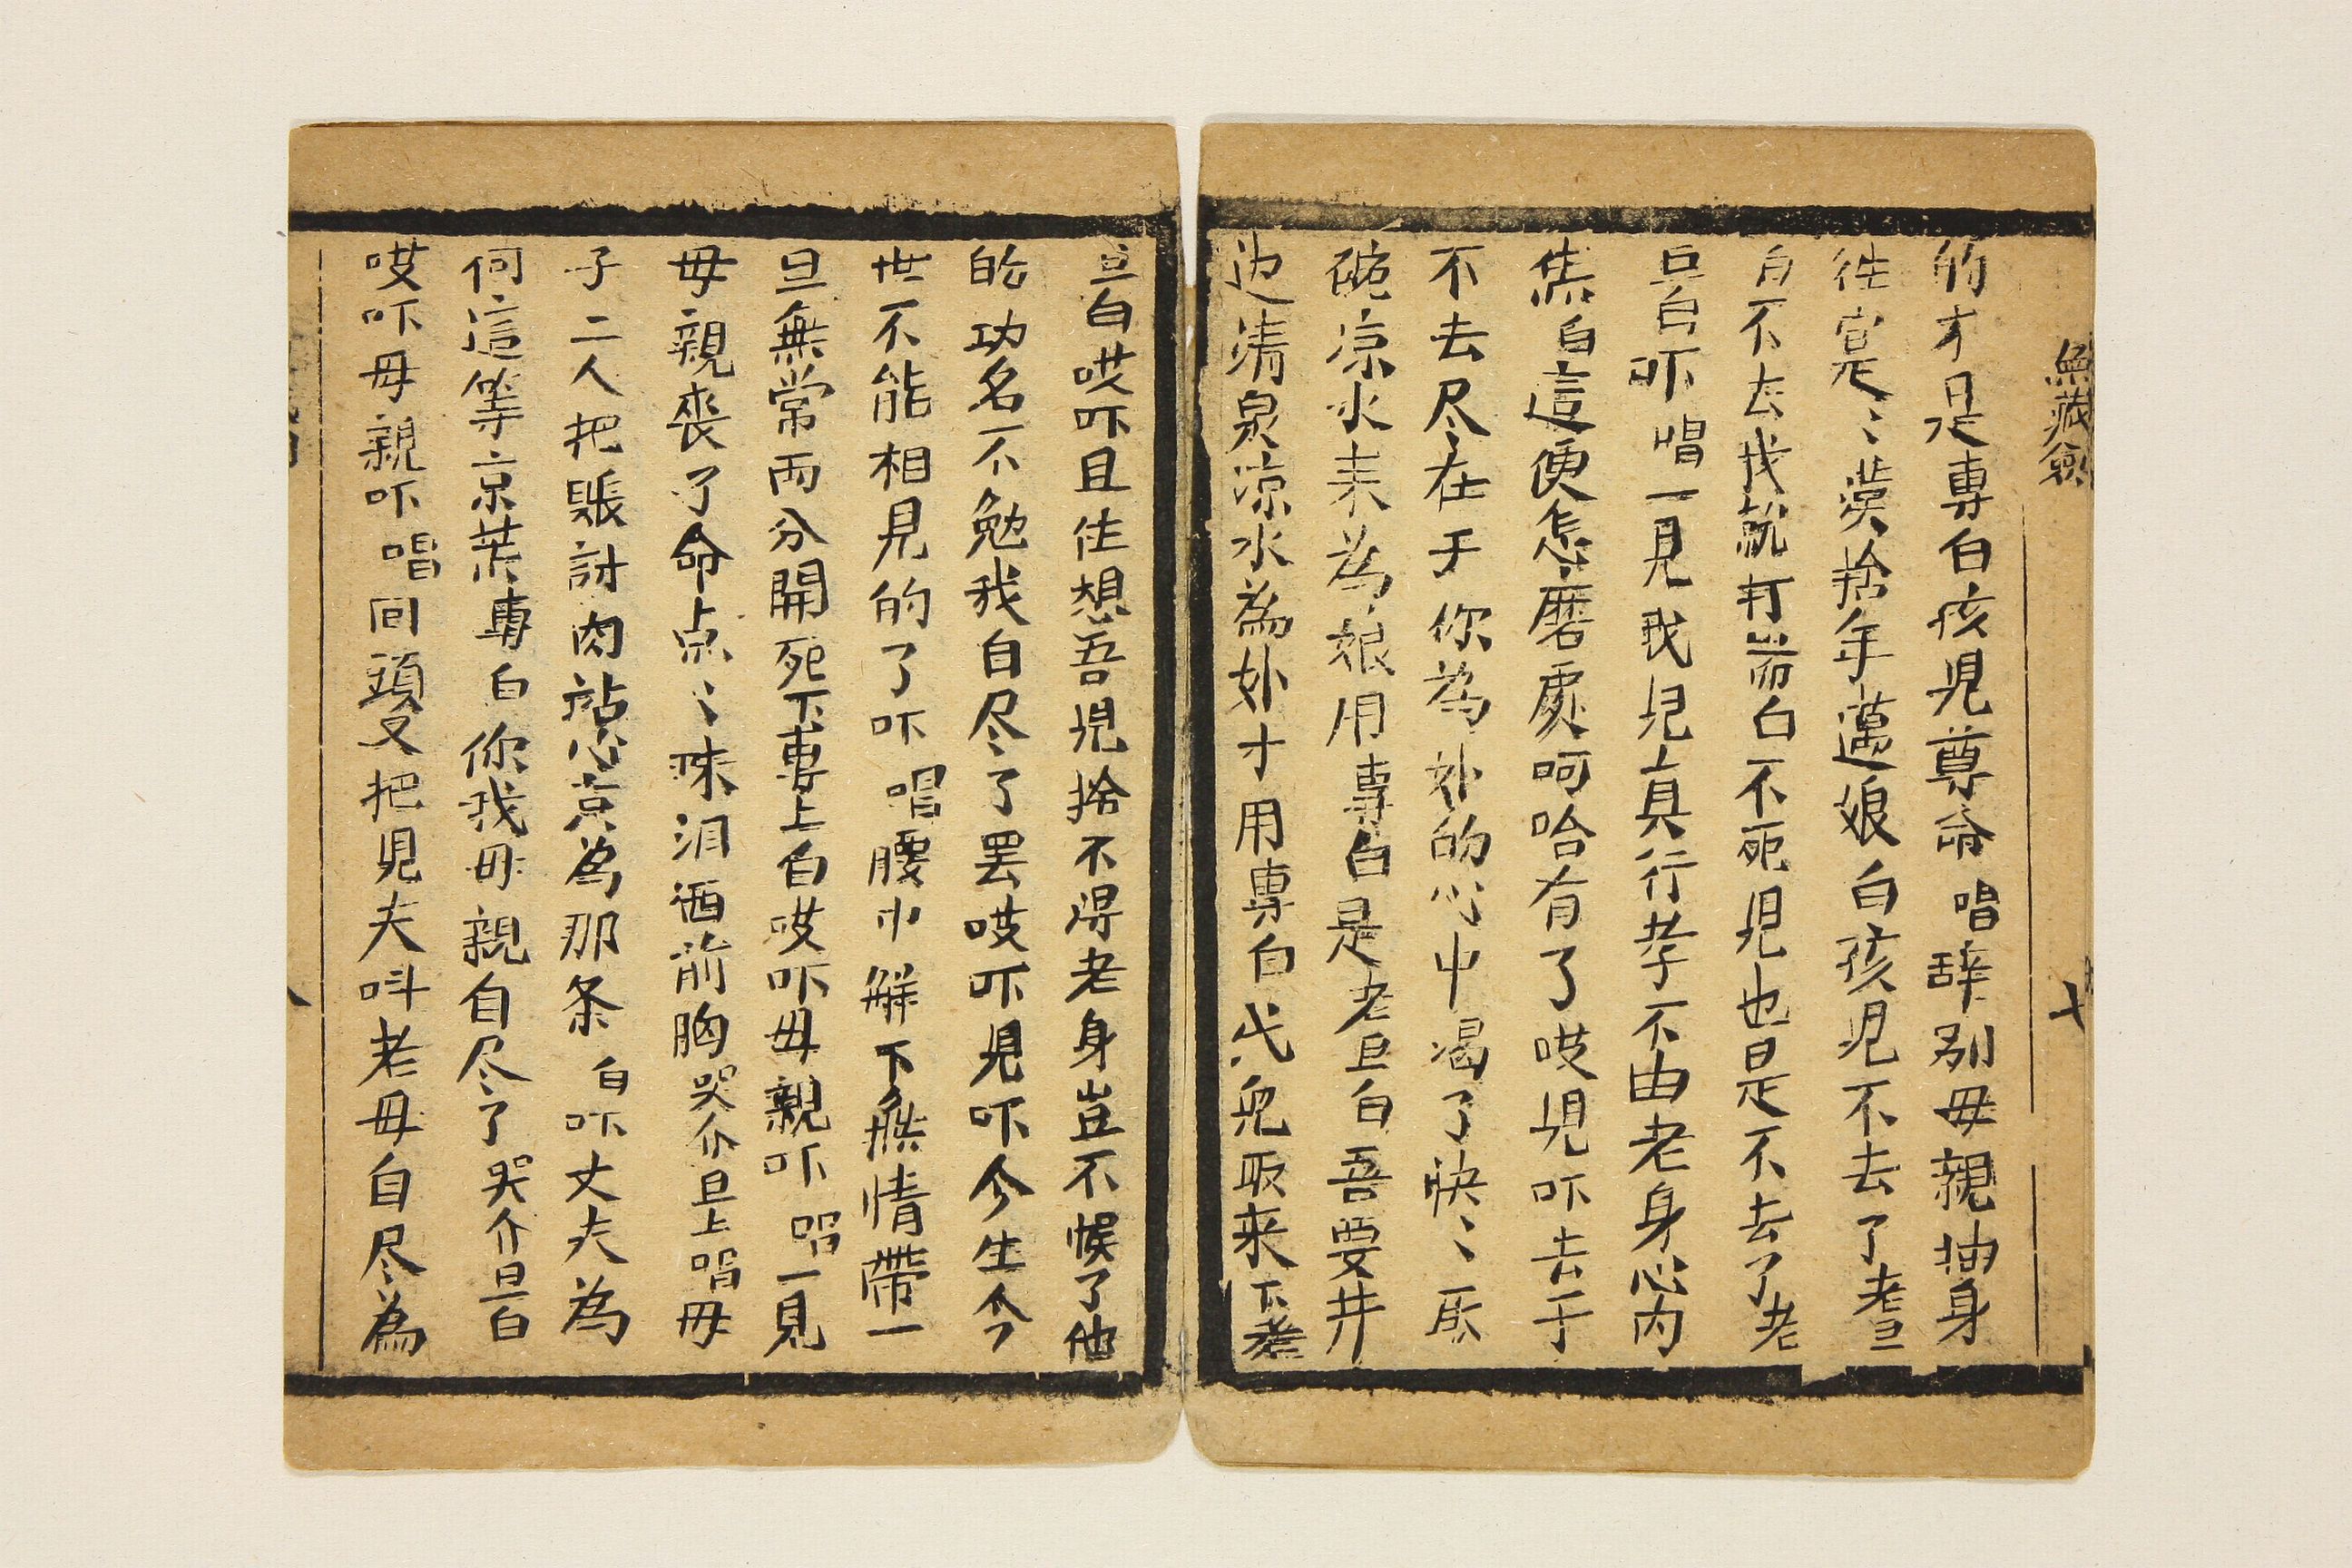 魚藏劍
七
的才是專白孩児尊命唱辞別母親抽身
往宫是〻捨年邁娘白孩児不去了老旦
白不去我就打耑白不死児也是不去了老
旦白吓唱一見我児真行孝不由老身心内
焦白這便怎麽處呵哈有了哎児吓去于
不去尽在于你為外的心中渴了快〻
碗凉水来為娘用專白是老旦白吾要井
边清泉凉水為外才用專白代兒取来下老
旦白哎吓且住想吾児捨不得老身豈不悞了他
的功名不勉我自尽了罢哎吓児吓今生今
世不能相見的了吓唱腰巾解下無情帶一
旦無常両分開死下專上白哎吓母親吓唱一見
母親丧了命点〻珠泪洒前胸哭介旦上唱母
子二人把賬討肉站心京為那条白吓丈夫為
何這等京荒專白你我母親自尽了哭介旦白
哎吓母親吓唱回頭又把児夫叫老母自尽為